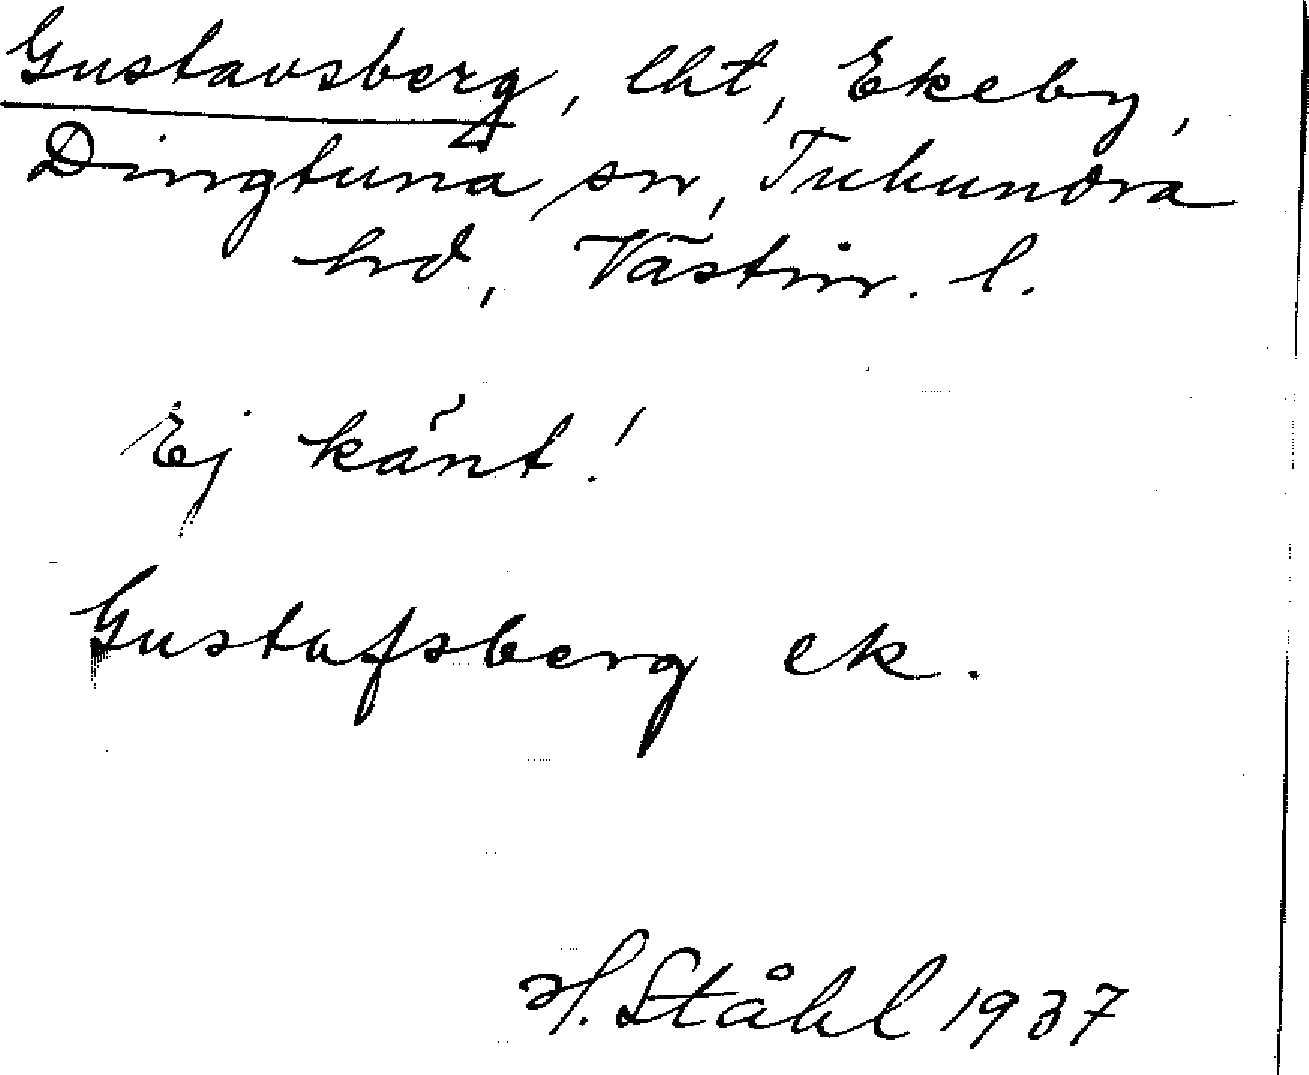 Gustavsberg, lht, Ekeby,
Dingtuna sn, Tuhundra
hd, Västm. l.
Ej känt!
Gustafsberg ek.
H. Ståhl 1937